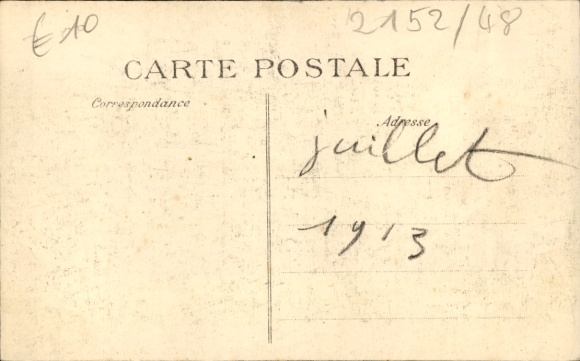 €10
2152/48
CARTE POSTALE
Correspondance
Adresse
juillet
1913